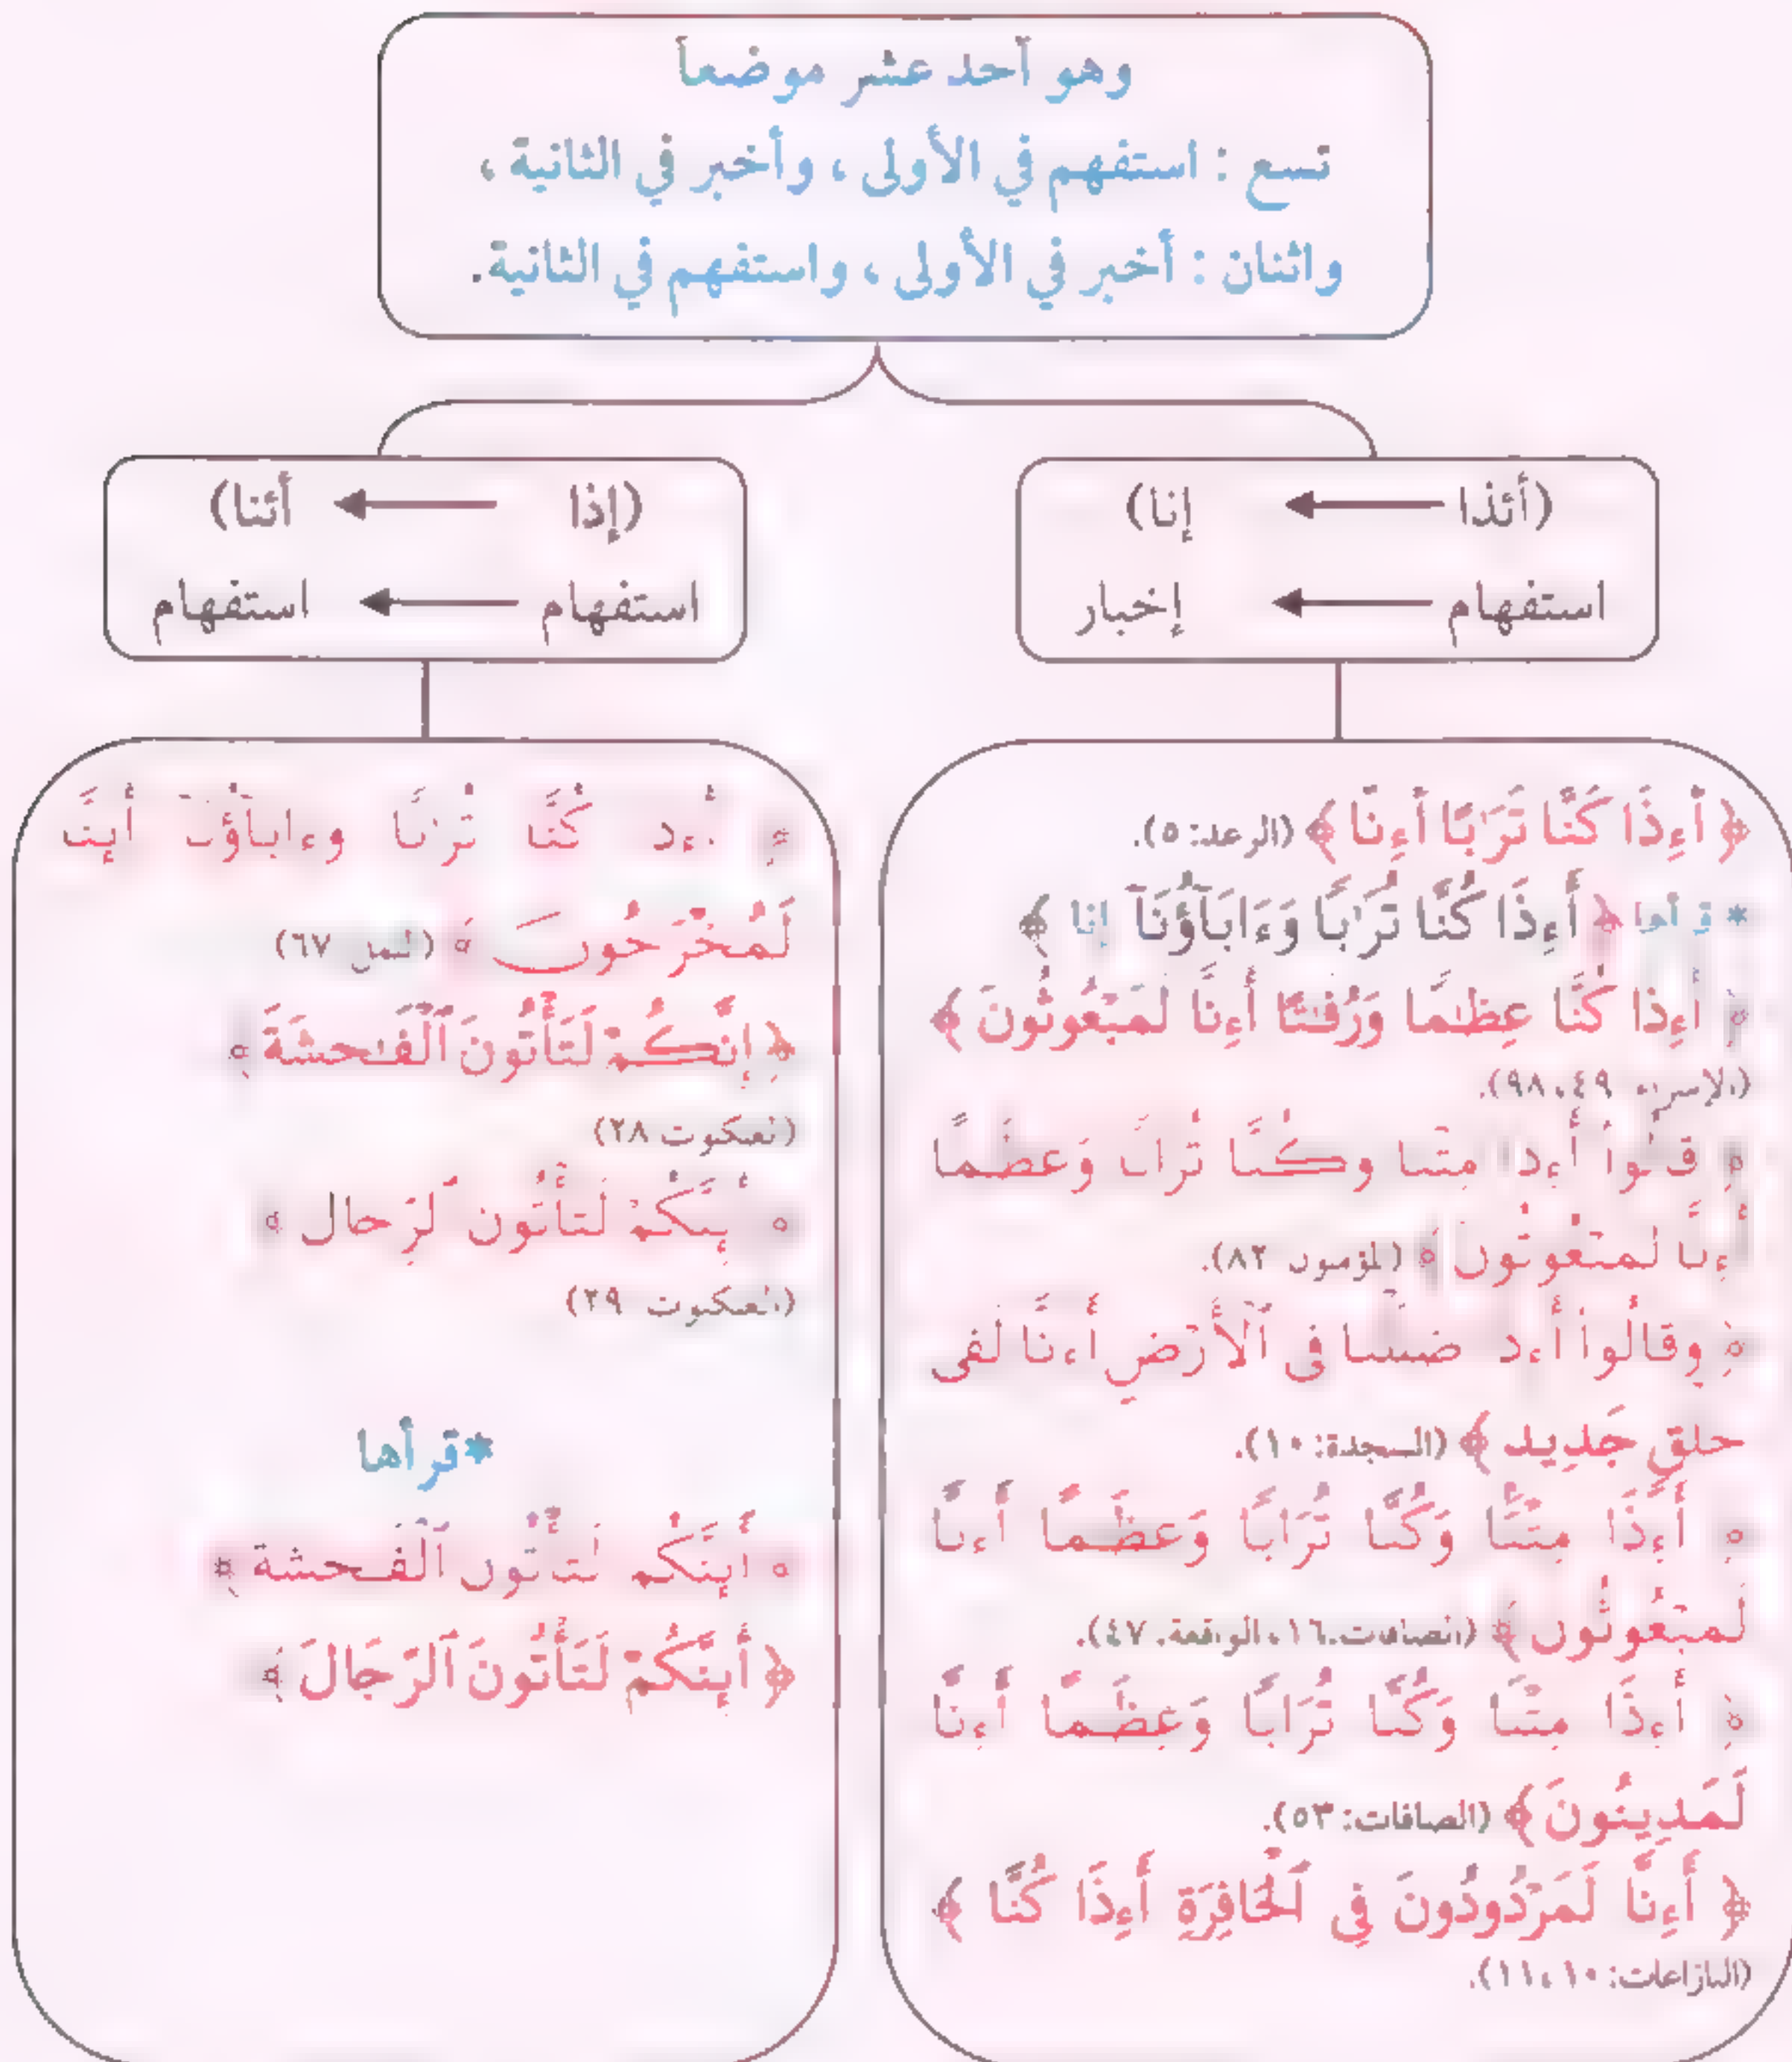 وهو أحد عشر موضعاً
تسع : استفهم في الأولى ، وأخبر في الثانية ،
واثنان : أخبر في الأولى ، واستفهم في الثانية.
(أئذا ← إنا)
استفهام ← إخبار
﴿ أَءِذَا كُنَّا تُرَٰبًا أَءِنَّا ﴾ (الرعد: ٥).
* قرأها ﴿ أَءِذَا كُنَّا تُرَٰبًا وَءَابَآؤُنَآ إنا ﴾
﴿ أَءِذَا كُنَّا عِظَٰمًا وَرُفَٰتًا أَءِنَّا لَمَبْعُوثُونَ ﴾
(الإسراء: ٤٩، ٩٨).
﴿ قَالُوٓا۟ أَءِذَا مِتْنَا وَكُنَّا تُرَابًا وَعِظَٰمًا
أَءِنَّا لَمَبْعُوثُونَ ﴾ (المؤمنون ٨٢).
﴿ وَقَالُوٓا۟ أَءِذَا ضَلَلْنَا فِى ٱلْأَرْضِ أَءِنَّا لَفِى
خَلْقٍ جَدِيدٍ ﴾ (السجدة: ١٠).
﴿ أَءِذَا مِتْنَا وَكُنَّا تُرَابًا وَعِظَٰمًا أَءِنَّا
لَمَبْعُوثُونَ ﴾ (الصافات: ١٦، الواقعة: ٤٧).
﴿ أَءِذَا مِتْنَا وَكُنَّا تُرَابًا وَعِظَٰمًا أَءِنَّا
لَمَدِينُونَ ﴾ (الصافات: ٥٣).
﴿ أَءِنَّا لَمَرْدُودُونَ فِى ٱلْحَافِرَةِ أَءِذَا كُنَّا ﴾
(النازعات: ١٠، ١١).
(إذا ← أئنا)
استفهام ← استفهام
﴿ أَءِذَا كُنَّا تُرَٰبًا وَءَابَآؤُنَآ أَئِنَّا
لَمُخْرَجُونَ ﴾ (النمل ٦٧)
﴿ إِنَّكُمْ لَتَأْتُونَ ٱلْفَٰحِشَةَ ﴾
(العنكبوت ٢٨)
﴿ أَئِنَّكُمْ لَتَأْتُونَ ٱلرِّجَالَ ﴾
(العنكبوت ٢٩)
*قرأها
﴿ أَئِنَّكُمْ لَتَأْتُونَ ٱلْفَٰحِشَةَ ﴾
﴿ أَئِنَّكُمْ لَتَأْتُونَ ٱلرِّجَالَ ﴾